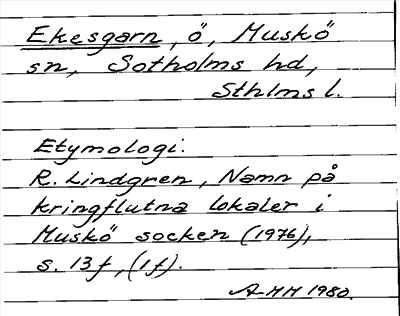 Ekesgarn, ö, Muskö
sn, Sotholms hd,
Sthlms l.
Etymologi.
R. Lindgren, Namn på
kringflutna lokaler i
Muskö socken (1976),
s. 13f, (1f).
AHH 1980.